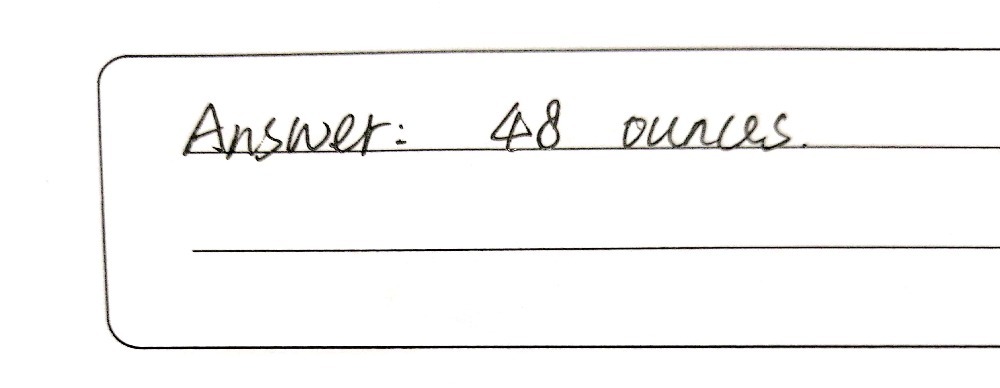 Answer: 48 ounces.